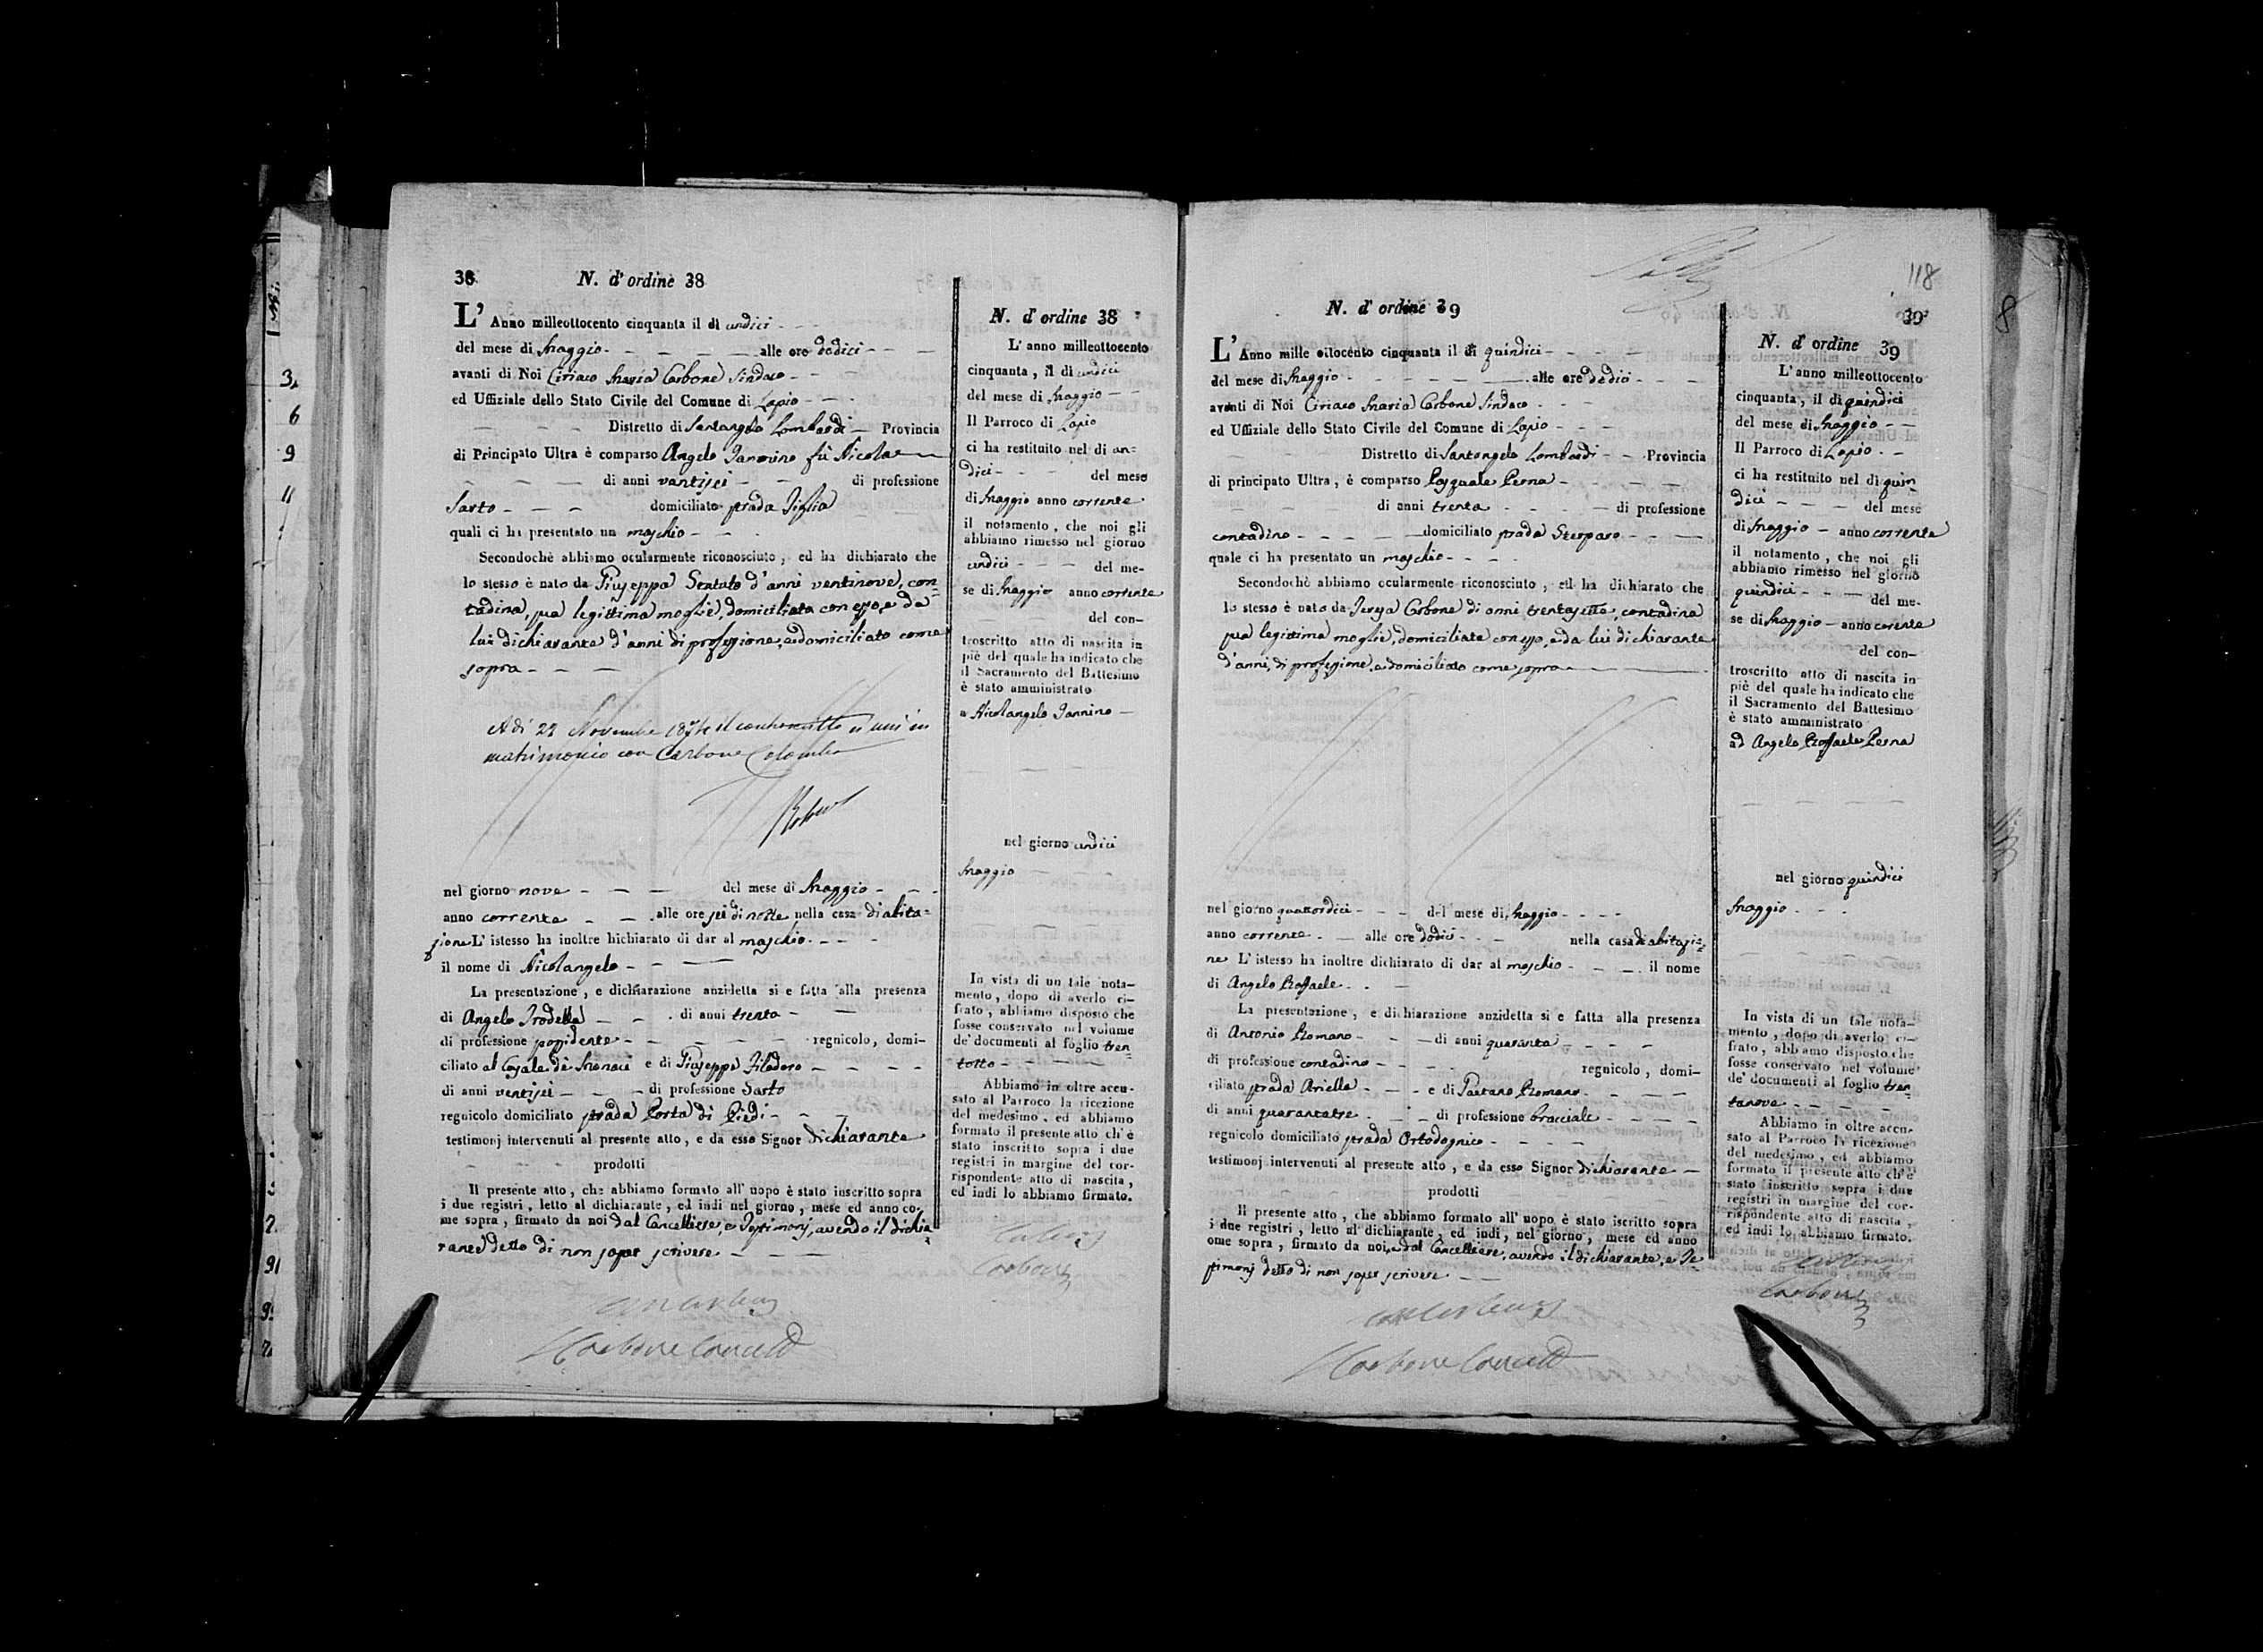 38
N. d' ordine 38
L' Anno milleottocento cinquanta il di undici
del mese di Maggio alle ore dodici
avanti di Noi Ciriaco Maria Carbone Sindaco
ed Uffiziale dello Stato Civile del Comune di Lapio
Distretto di Santangelo Lombardi Provincia
di Principato Ultra è comparso Angelo Iannino fù Nicola
di anni ventisei di professione
Sarto domiciliato strada Tiglia
quali ci ha presentato un maschio
Secondochè abbiamo ocularmente riconosciuto, ed ha dichiarato che
lo stesso è nato da Giuseppa Scatuto d'anni ventinove, con=
tadina, sua legittima moglie, domiciliata con esso, e da
lui dichiarante d'anni di professione, e domiciliato come
sopra
A dì 22 Novembre 1874 il controscritto si unì in
matrimonio con Carbone Colomba
nel giorno nove del mese di Maggio
anno corrente alle ore sei di notte nella casa di abita=
zione L' istesso ha inoltre hichiarato di dar al maschio
il nome di Nicolangelo
La presentazione, e dichiarazione anzidetta si e fatta alla presenza
di Angelo Trodella di anni trenta
di professione possidente regnicolo, domi-
ciliato al Casale de Monaci e di Giuseppe Filadoro
di anni ventisei di professione Sarto
regnicolo domiciliato strada Porta di Piedi
testimonj intervenuti al presente atto, e da esso Signor dichiarante
prodotti
Il presente atto, che abbiamo formato all' uopo è stato inscritto sopra
i due registri, letto al dichiarante, ed indi nel giorno, mese ed anno co-
me sopra, firmato da noi dal Cancelliere, e Testimonj, avendo il dichia=
rante detto di non saper scrivere
Carbone
N. d' ordine 38
L' anno milleottocento
cinquanta, il di undici
del mese di Maggio
Il Parroco di Lapio
ci ha restituito nel di un=
dici del mese
di Maggio anno corrente
il notamento, che noi gli
abbiamo rimesso nel giorno
undici del me-
se di Maggio anno corrente
del con-
troscritto atto di nascita in
piè del quale ha indicato che
il Sacramento del Battesimo
è stato amministrato
a Nicolangelo Iannino
nel giorno undici
Maggio
In vista di un tale nota-
mento, dopo di averlo ci-
frato, abbiamo disposto che
fosse conservato nel volume
de' documenti al foglio tren=
totto
Abbiamo in oltre accu-
sato al Parroco la ricezione
del medesimo, ed abbiamo
formato il presente atto ch' è
stato inscritto sopra i due
registri in margine del cor-
rispondente atto di nascita,
ed indi lo abbiamo firmato.
Carbone
118
N. d' ordine 39
39
L' Anno mille ottocento cinquanta il di quindici
del mese di Maggio alle ore dodici
avanti di Noi Ciriaco Maria Carbone Sindaco
ed Uffiziale dello Stato Civile del Comune di Lapio
Distretto di Santangelo Lombardi Provincia
di principato Ultra, è comparso Pasquale Perna
di anni trenta di professione
contadino domiciliato strada Sterparo
quale ci ha presentato un maschio
Secondochè abbiamo ocularmente riconosciuto, ed ha dichiarato che
lo stesso è nato da Teresa Carbone di anni trentasette, contadina
sua legittima moglie, domiciliata con esso, e da lui dichiarante
d'anni, di professione, e domiciliato come sopra
nel giorno quattordici del mese di Maggio
anno corrente alle ore dodici nella casa di abitazio=
ne L' istesso ha inoltre dichiarato di dar al maschio il nome
di Angelo Raffaele
La presentazione, e dichiarazione anzidetta si e fatta alla presenza
di Antonio Romano di anni quaranta
di professione contadino regnicolo, domi-
ciliato strada Ariella e di Gaetano Romano
di anni quarantatre di professione bracciale
regnicolo domiciliato strada Ortodognico
testimonj intervenuti al presente atto, e da esso Signor dichiarante
prodotti
Il presente atto, che abbiamo formato all' uopo è stato iscritto sopra
i due registri, letto al dichiarante, ed indi, nel giorno, mese ed anno
ome sopra, firmato da noi, e dal Cancelliere, avendo il dichiarante, e Te=
stimonj detto di non saper scrivere
Carbone
N. d' ordine 39
L' anno milleottocento
cinquanta, il di quindici
del mese di Maggio
Il Parroco di Lapio
ci ha restituito nel di quin=
dici del mese
di Maggio anno corrente
il notamento, che noi gli
abbiamo rimesso nel giorno
quindici del me-
se di Maggio anno corrente
del con-
troscritto atto di nascita in
piè del quale ha indicato che
il Sacramento del Battesimo
è stato amministrato
ad Angelo Raffaele Perna
nel giorno quindici
Maggio
In vista di un tale nota-
mento, dopo di averlo ci-
frato, abbiamo disposto che
fosse conservato nel volume
de' documenti al foglio tren
tanove
Abbiamo in oltre accu-
sato al Parroco la ricezione
del medesimo, ed abbiamo
formato il presente atto ch' è
stato inscritto sopra i due
registri in margine del cor-
rispondente atto di nascita,
ed indi lo abbiamo firmato.
Carbone